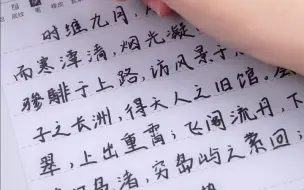 时维九月,
而寒潭清,烟光凝
骖騑于上路,访风景于
子之长洲,得天人之旧馆。
翠,上出重霄;飞阁流丹,下
凫渚,穷岛屿之萦回;